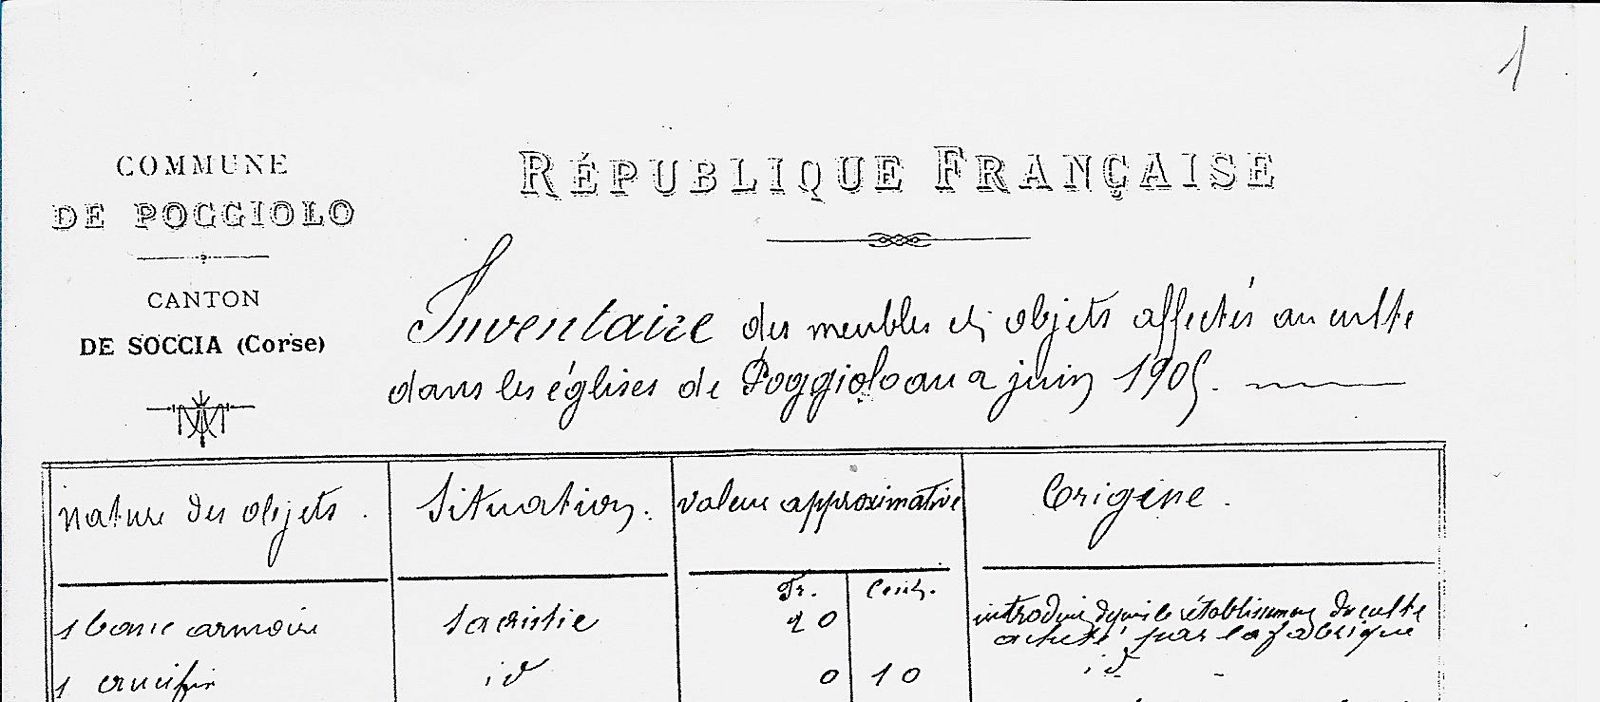 1
COMMUNE
DE POGGIOLO
CANTON
DE SOCCIA (Corse)
RÉPUBLIQUE FRANÇAISE
Inventaire des meubles et objets affectés au culte
dans les églises de Poggiolo au 2 juin 1905.
nature des objets. Situation. valeur approximative Origine.
Fr. Cent.
1 armoire sacristie 20 introduit depuis le établissement du culte
acheté par la fabrique
1 crucifix id 0 10 id -